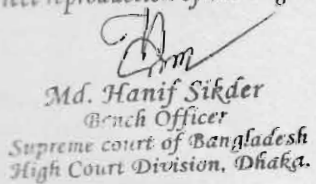 reproduction of
Md. Hanif Sikder
Bench Officer
Supreme court of Bangladesh
High Court Division, Dhaka.